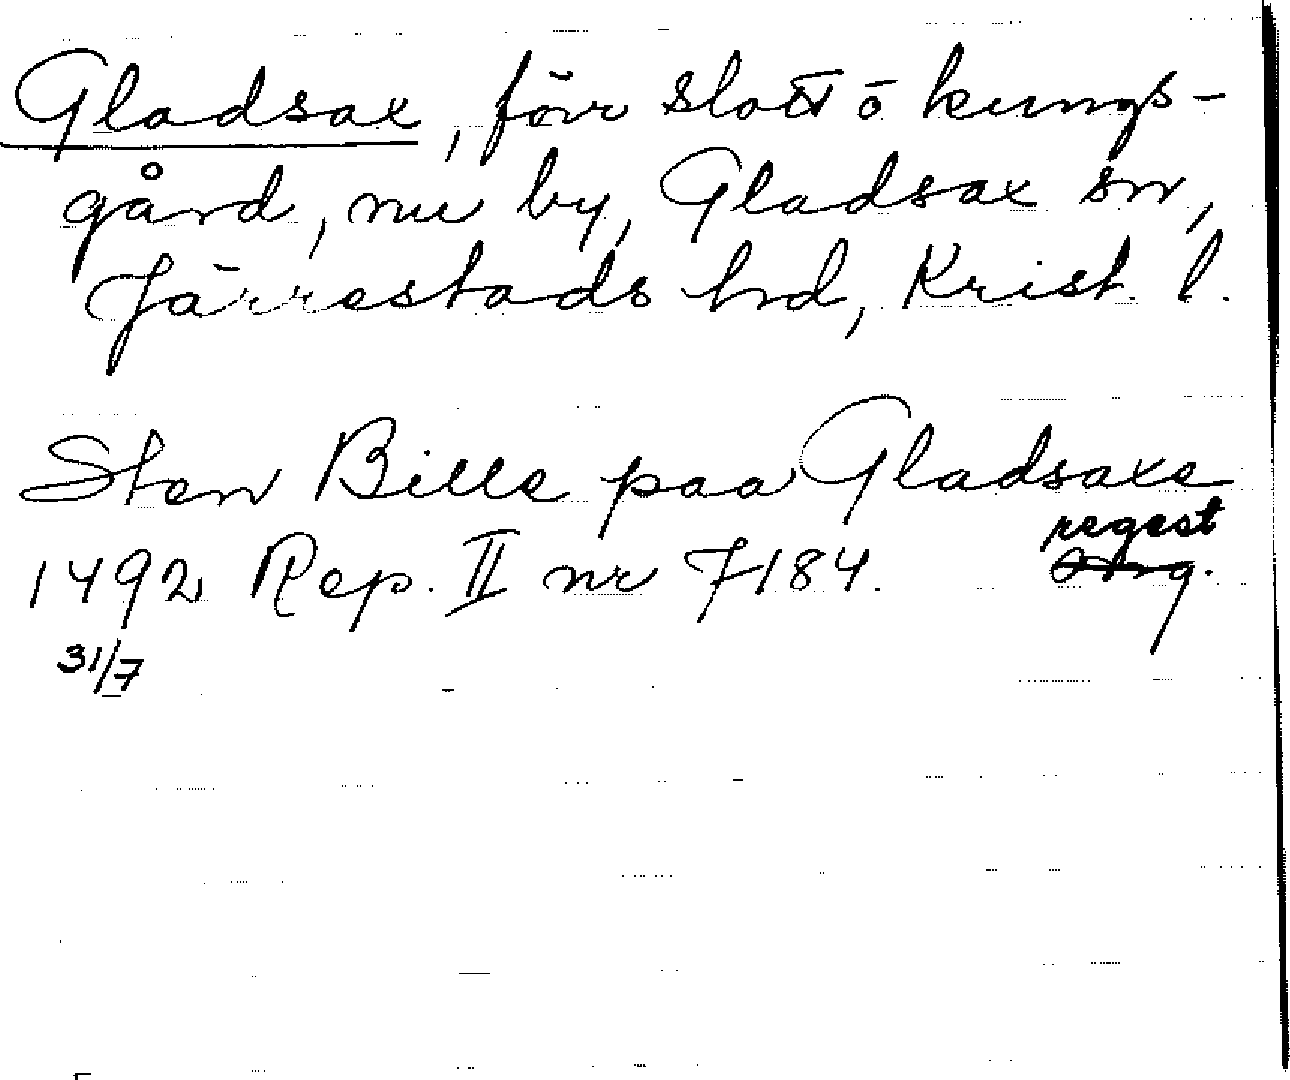 Gladsax, förr slott ō kungs-
gård, nu by, Gladsax sn,
Järrestads hd, Krist. l.
Sten Bille paa Gladsaxe
regest
1492 Rep. II nr 7184. Orig.
31/7